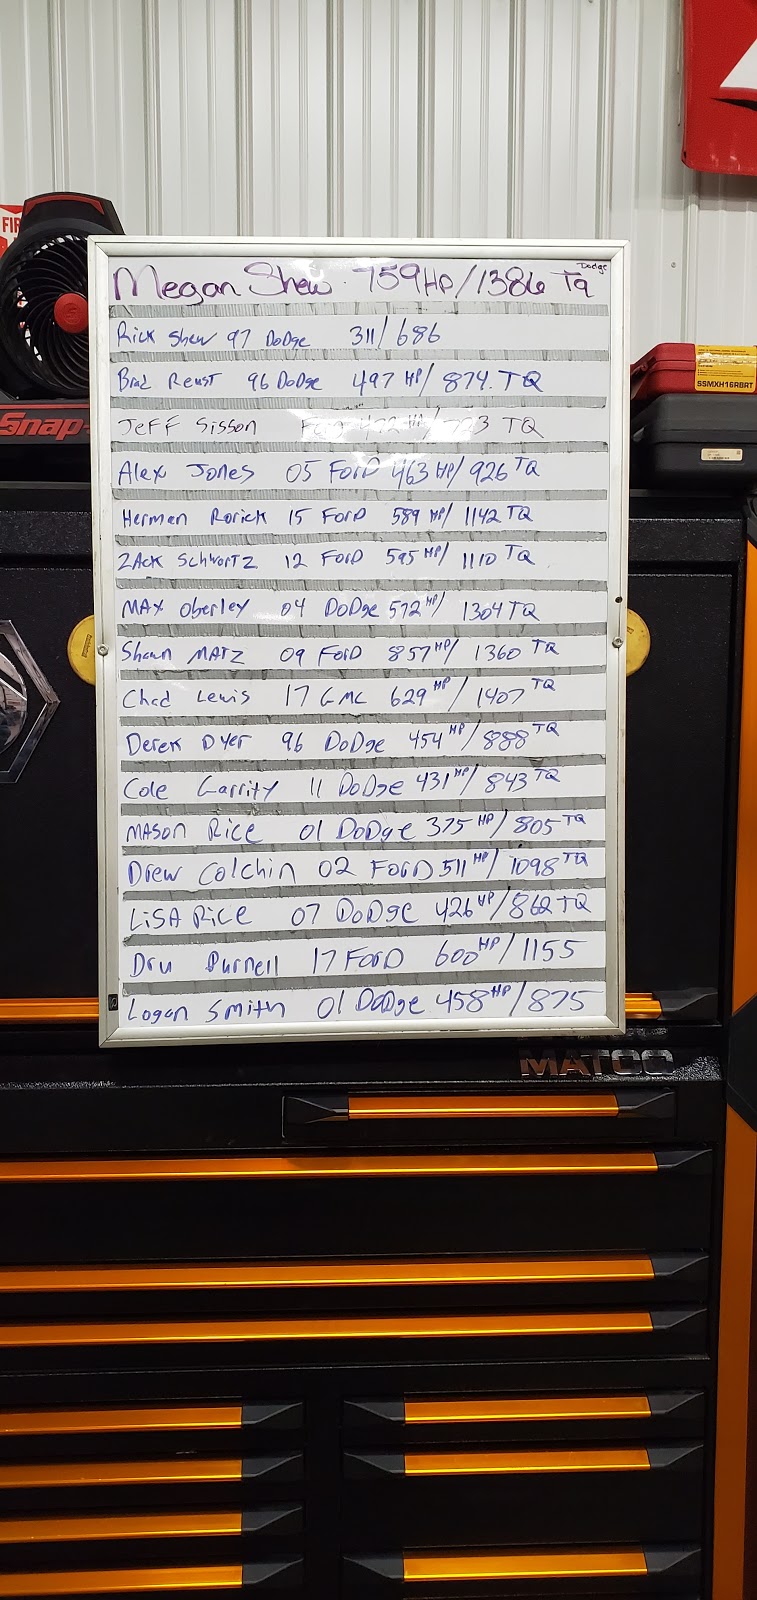 FIR
Snap-
SSMXH16RBRT
Dodge
Megan Shew 759HP/1386 TQ
Rick Shew 97 DoDge 311/686
Brad Reust 96 DoDge 497 HP/874. TQ
JeFF Sisson TQ
Alex Jones 05 ForD 463 HP/926 TQ
Herman Rorick 15 ForD 589 HP/1142 TQ
ZAck Schwartz 12 ForD 595 HP/1110 TQ
MAX Oberley 04 DoDge 572 HP/1304 TQ
Shawn MATZ 09 ForD 857 HP/1360 TQ
Chad Lewis 17 GMC 629 HP/1407 TQ
Derek Dyer 96 DoDge 454 HP/888 TQ
Cole Garrity 11 DoDge 431 HP/843 TQ
MASon Rice 01 DoDge 375 HP/805 TQ
Drew Colchin 02 ForD 511 HP/1098 TQ
LiSA Rice 07 DoDge 426 HP/862 TQ
Dru Purnell 17 ForD 600 HP/1155
Logan Smith 01 DoDge 458 HP/875
MATCO